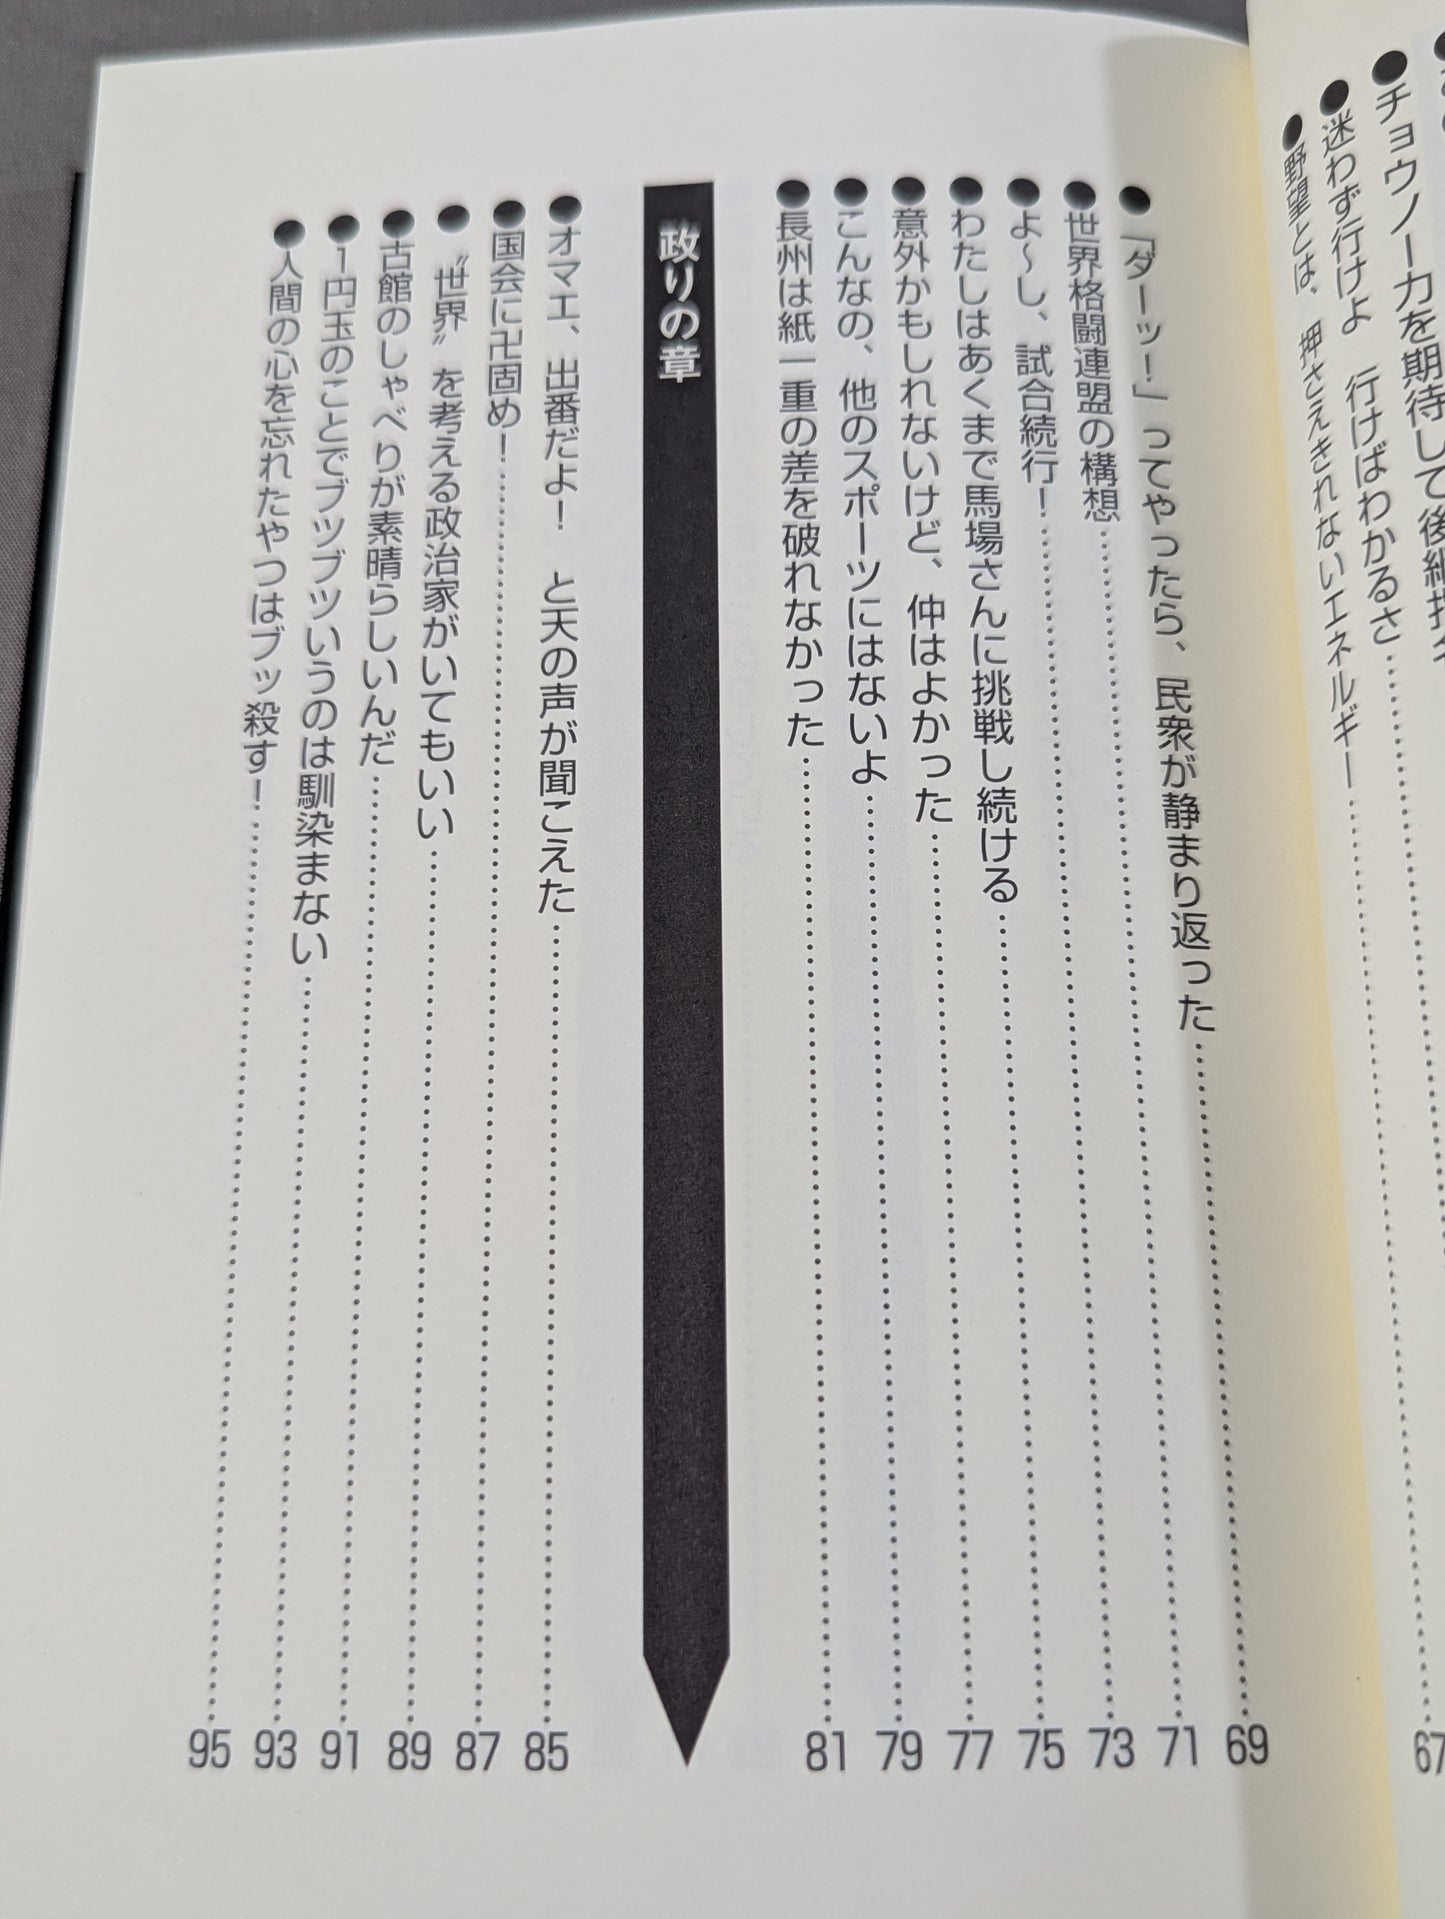 チョウノー力を期待して後継
67
迷わず行けよ 行けばわかるさ
野望とは、押さえきれないエネルギー
「ダーッ!」ってやったら、民衆が静まり返った 69
世界格闘連盟の構想 71
よ〜し、試合続行! 73
わたしはあくまで馬場さんに挑戦し続ける 75
意外かもしれないけど、仲はよかった 77
こんなの、他のスポーツにはないよ 79
長州は紙一重の差を破れなかった 81
政りの章
オマエ、出番だよ! と天の声が聞こえた 85
国会に卍固め! 87
〝世界〟を考える政治家がいてもいい 89
古館のしゃべりが素晴らしいんだ 91
1円玉のことでブツブツいうのは馴染まない 93
人間の心を忘れたやつはブッ殺す! 95